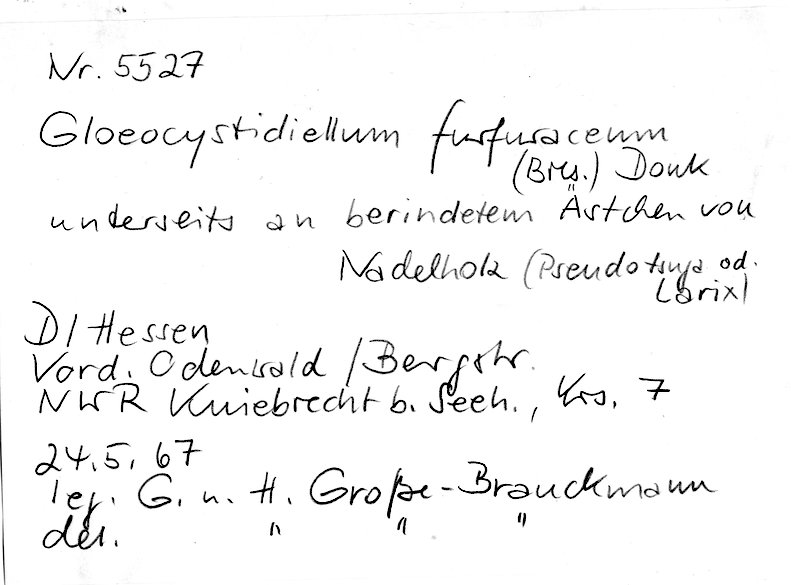 Nr. 5527
Gloeocystidiellum furfuraceum
(Bres.) Donk
unterseits an berindetem Ästchen von
Nadelholz (Pseudotsuga od.
Larix)
D/Hessen
Vord. Odenwald/Bergstr.
NWR Kniebrecht b. Seeh., Krs. 7
24.5.67
leg. G. u. H. Große-Brauckmann
det. " " "